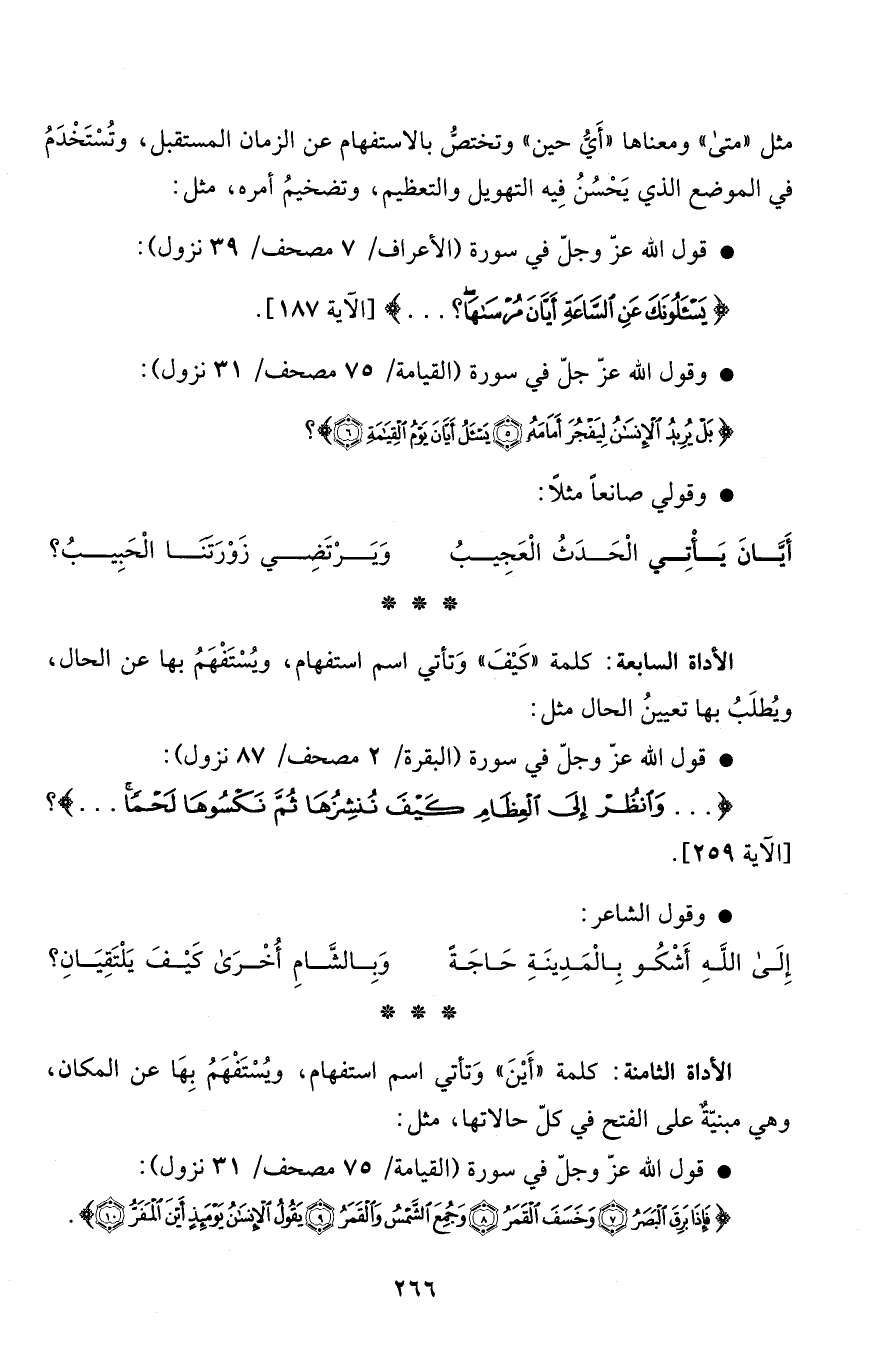 مثل «متىٰ» ومعناها «أَيُّ حين» وتختصُّ بالاستفهام عن الزمان المستقبل، وتُسْتَخْدَمُ
في الموضع الذي يَحْسُنُ فِيه التهويل والتعظيم، وتضخيمُ أمره، مثل:
● قول الله عزّ وجلّ في سورة (الأعراف/ ٧ مصحف/ ٣٩ نزول):
﴿يَسْـَٔلُونَكَ عَنِ ٱلسَّاعَةِ أَيَّانَ مُرْسَىٰهَاۖ؟ . . . ﴾ [الآية ١٨٧].
● وقول الله عزّ جلّ في سورة (القيامة/ ٧٥ مصحف/ ٣١ نزول):
﴿بَلْ يُرِيدُ ٱلْإِنسَٰنُ لِيَفْجُرَ أَمَامَهُۥ ۝٥ يَسْـَٔلُ أَيَّانَ يَوْمُ ٱلْقِيَٰمَةِ ۝٦﴾؟
● وقولي صانعاً مثلاً:
أَيَّـانَ يَـأْتِـي الْحَـدَثُ الْعَجِيـبُ وَيَـرْتَضِـي زَوْرَتَنَـا الْحَبِيـبُ؟
* * *
الأداة السابعة: كلمة «كَيْفَ» وَتأتي اسم استفهام، ويُسْتَفْهَمُ بها عن الحال،
ويُطلَبُ بها تعيينُ الحال مثل:
● قول الله عزّ وجلّ في سورة (البقرة/ ٢ مصحف/ ٨٧ نزول):
﴿. . . وَٱنظُرْ إِلَى ٱلْعِظَامِ كَيْفَ نُنشِزُهَا ثُمَّ نَكْسُوهَا لَحْمًاۚ . . .﴾؟
[الآية ٢٥٩].
● وقول الشاعر:
إِلَىٰ اللَّـهِ أَشْكُـو بِـالْمَـدِينَـةِ حَـاجَـةً وَبِـالشَّـامِ أُخْـرَىٰ كَيْـفَ يَلْتَقِيَـانِ؟
* * *
الأداة الثامنة: كلمة «أَيْنَ» وَتأتي اسم استفهام، ويُسْتَفْهَمُ بِهَا عن المكان،
وهي مبنيّةٌ على الفتح في كلّ حالاتها، مثل:
● قول الله عزّ وجلّ في سورة (القيامة/ ٧٥ مصحف/ ٣١ نزول):
﴿فَإِذَا بَرِقَ ٱلْبَصَرُ ۝٧ وَخَسَفَ ٱلْقَمَرُ ۝٨ وَجُمِعَ ٱلشَّمْسُ وَٱلْقَمَرُ ۝٩ يَقُولُ ٱلْإِنسَٰنُ يَوْمَئِذٍ أَيْنَ ٱلْمَفَرُّ ۝١٠﴾.
٢٦٦